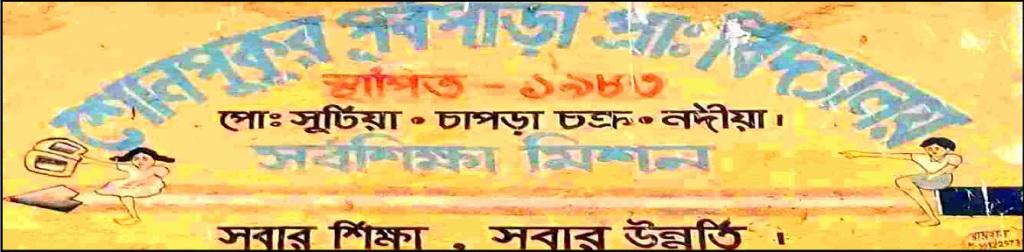 শোনপুকুর পূর্বপাড়া প্রাঃ বিদ্যালয়
স্থাপিত - ১৯৮৩
পোঃ সুটিয়া • চাপড়া চক্র • নদীয়া।
সর্বশিক্ষা মিশন
সবার শিক্ষা , সবার উন্নতি ।